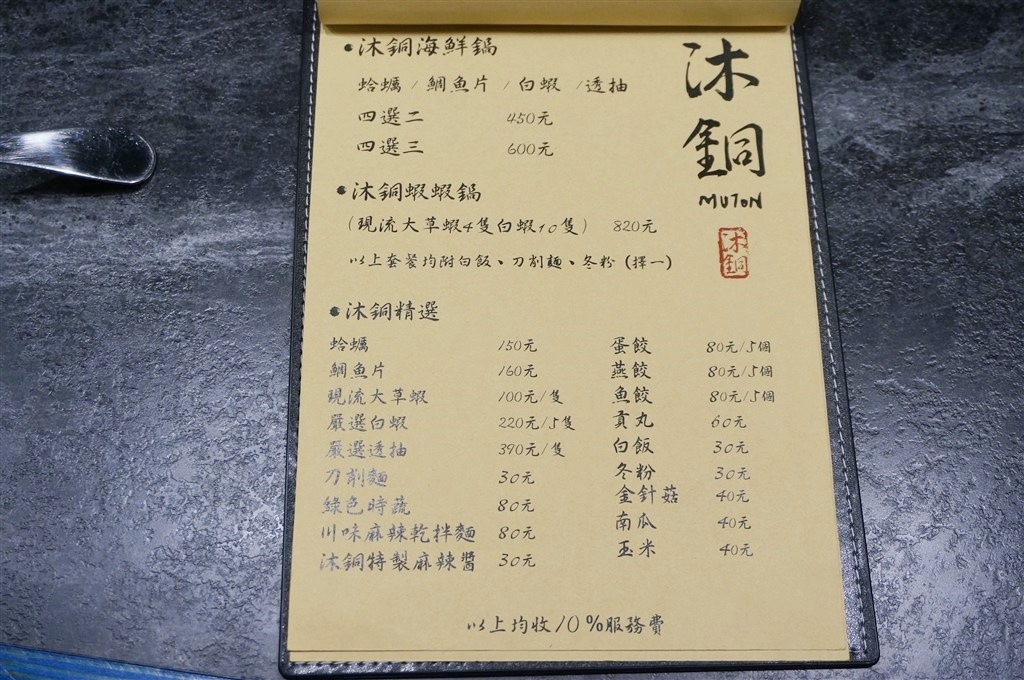 沐銅
MUTON
沐銅
•沐銅海鮮鍋
蛤蠣/鯛魚片/白蝦/透抽
四選二 450元
四選三 600元
•沐銅蝦蝦鍋
(現流大草蝦4隻白蝦10隻) 820元
以上套餐均附白飯、刀削麵、冬粉(擇一)
•沐銅精選
蛤蠣 150元
鯛魚片 160元
現流大草蝦 100元/隻
嚴選白蝦 220元/5隻
嚴選透抽 390元/隻
刀削麵 30元
綠色時蔬 80元
川味麻辣乾拌麵 80元
沐銅特製麻辣醬 30元
蛋餃 80元/5個
燕餃 80元/5個
魚餃 80元/5個
貢丸 60元
白飯 30元
冬粉 30元
金針菇 40元
南瓜 40元
玉米 40元
以上均收10%服務費